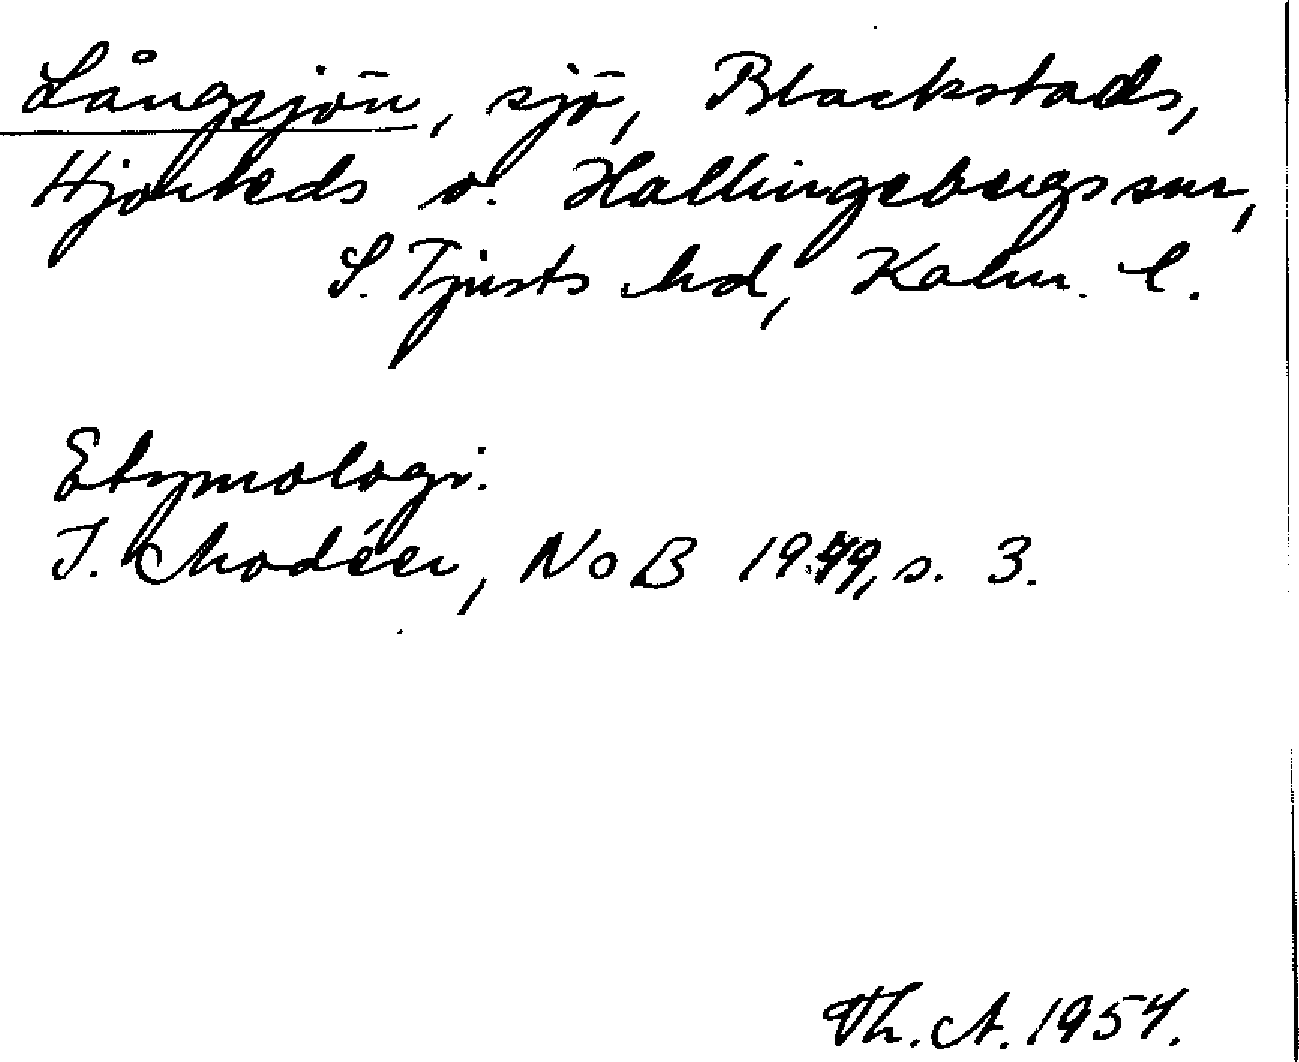 Långsjön, sjö, Blackstads,
Hjorteds o. Hallingebergs snr,
S. Tjusts hd, Kalm. l.
Etymologi:
I. Modéer, NoB 1949, s. 3.
Th. A. 1954.